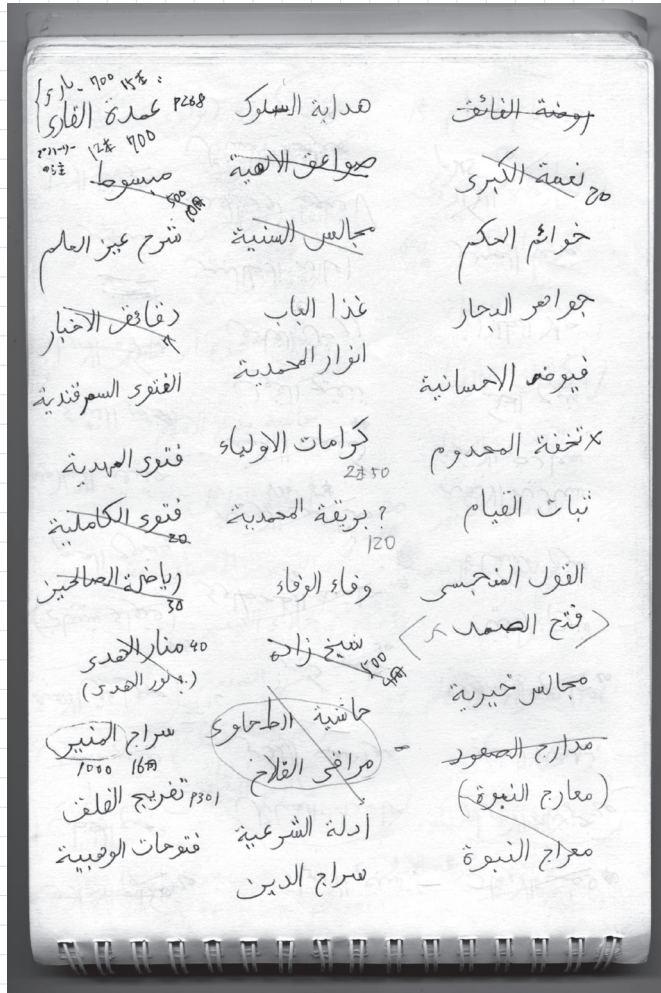 روضة الفائقة
نعمة الكبرى
20
خواتم الحكم
جواهر البحار
فيوض الاحسانية
x تحفة المخدوم
ثبات القيام
القول المنجسى
(فتح الصمد)
مجالس خيرية
مدارج الصعود
(معارج النبوة)
معراج النبوة
هداية السلوك
صواعق الالهية
مجالس السنية
غذا الباب
انوار المحمدية
كرامات الاولياء
2本50
? بريقة المحمدية
120
وفاء الوفاء
شيخ زاده
500
4冊
حاشية الطحاوى
مراقى الفلاح
أدلة الشرعية
سراج الدين
700 15本
عمدة القارى P268
12本 700
مبسوط
500
10冊
شرح عين العلم
دقائق الاخبار
الفتوى السمرقندية
فتوى المهدية
فتوى الكاملية
20
رياضة الصالحين
30
منار الهدى 40
سراج المنير
1000 16冊
تفريج القلق P301
فتوحات الوهبية